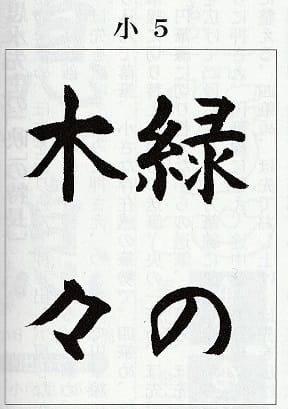 小5
緑の
木々